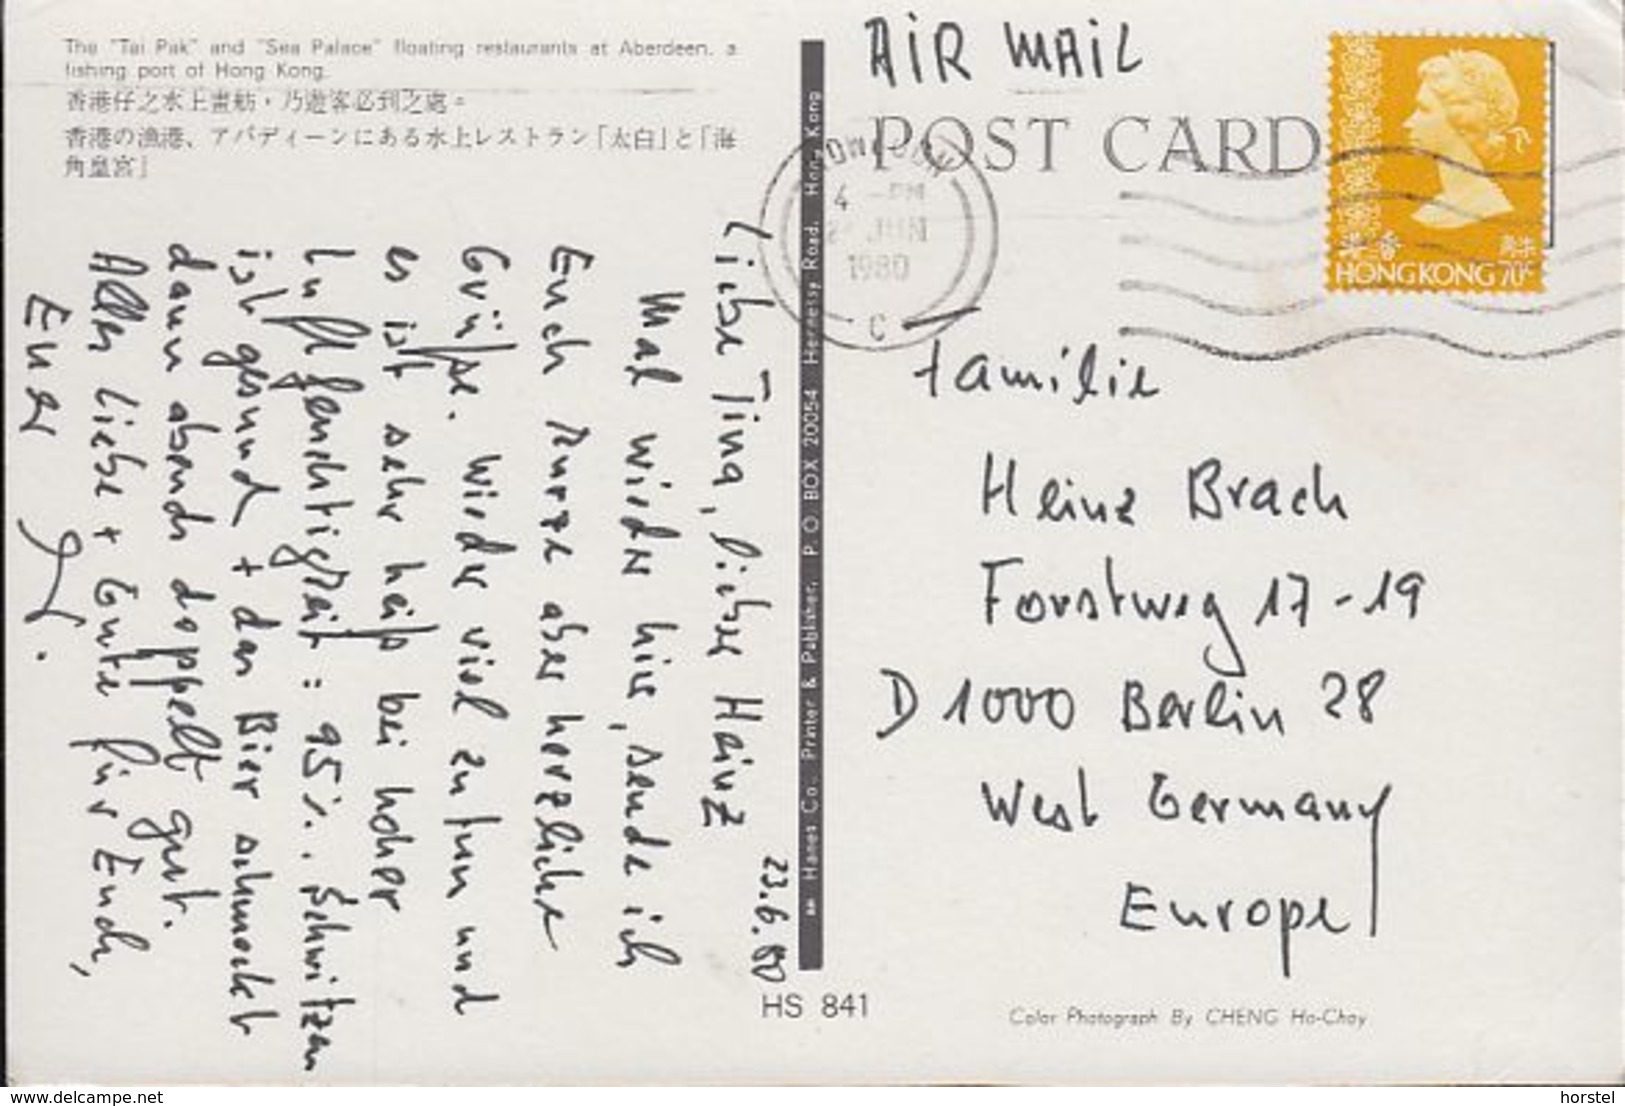 The "Tai Pak" and "Sea Palace" floating restaurants at Aberdeen, a
fishing port of Hong Kong.
香港仔之水上畫舫，乃遊客必到之處。
香港の漁港、アバディーンにある水上レストラン「太白」と「海
角皇宮」
23.6.80
Liebe Tina, lieber Heinz
Mal wieder hier, sende ich
Euch kurze aber herzliche
Grüße. Wieder viel zu tun und
es ist sehr heiß bei hoher
Luftfeuchtigkeit: 95%. Schwitzen
ist gesund + das Bier schmeckt
dann abends doppelt gut.
Alles Liebe + Gute für Euch,
Euer
Hanes Co., Printer & Publisher, P. O. BOX 20054 Hennessy Road, Hong Kong
HS 841
AIR MAIL
POST CARD
4 - PM
JUN
1980
C
香港
HONG KONG 70c
Familie
Heinz Brach
Forstweg 17-19
D 1000 Berlin 28
West Germany
Europe
Color Photograph By CHENG Ho-Choy
www.delcampe.net
horstel